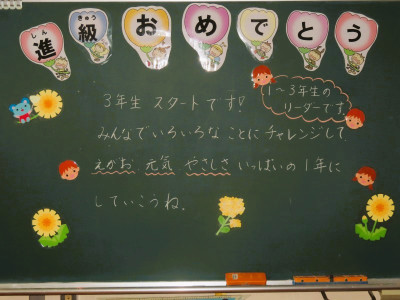 進級おめでとう
しん きゅう
3年生 スタートです!
1〜3年生の
リーダーです
みんなでいろいろなことにチャレンジして
えがお 元気 やさしさ いっぱいの1年に
していこうね。